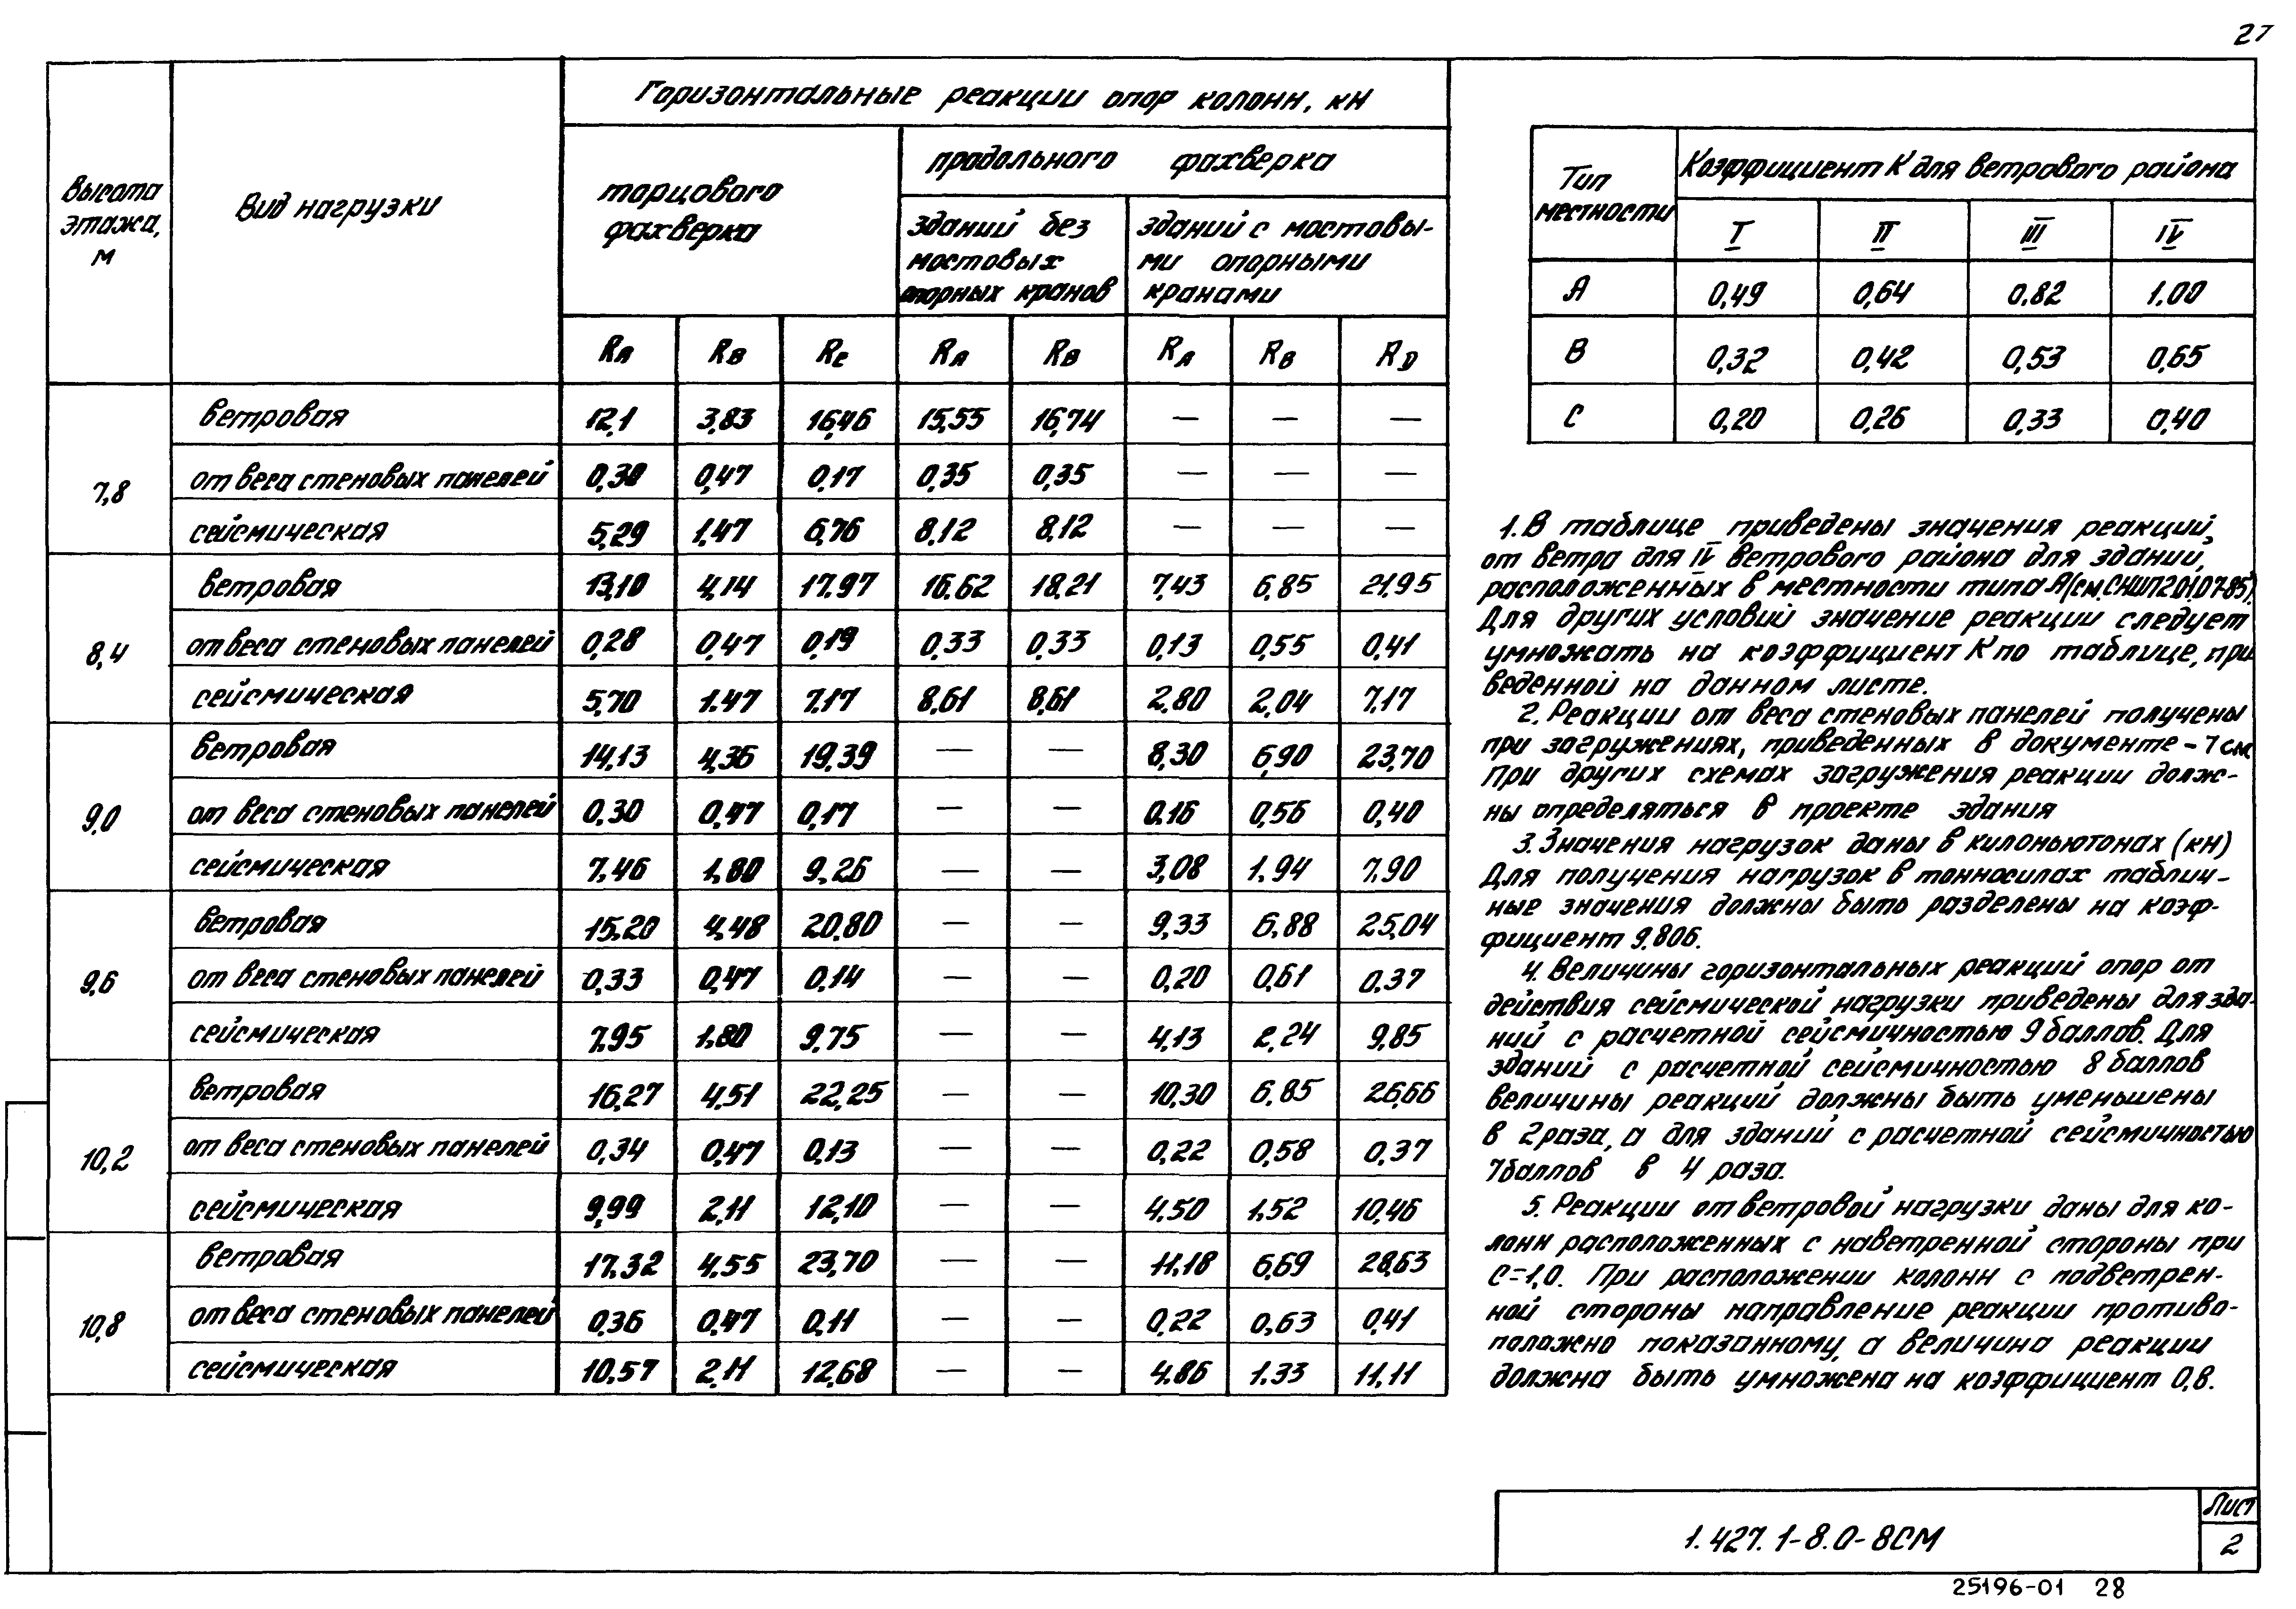 27
Горизонтальные реакции опор колонн, кН
Высота этажа, м
Вид нагрузки
торцового фахверка
продольного фахверка
зданий без мостовых опорных кранов
зданий с мостовы-
ми опорными
кранами
RА RВ RС RА RВ RА RВ RD
7,8
ветровая 12,1 3,83 16,46 15,55 16,74 — — —
от веса стеновых панелей 0,30 0,47 0,17 0,35 0,35 — — —
сейсмическая 5,29 1.47 6,76 8,12 8,12 — — —
8,4
ветровая 13,10 4,14 17.97 16.62 18,21 7,43 6,85 21,95
от веса стеновых панелей 0,28 0,47 0,19 0,33 0,33 0,13 0,55 0,41
сейсмическая 5,70 1.47 7.17 8,61 8,61 2,80 2,04 7,17
9,0
ветровая 14,13 4,36 19,39 — — 8,30 6,90 23,70
от веса стеновых панелей 0,30 0,47 0,17 — — 0.16 0,56 0,40
сейсмическая 7,46 1,80 9,26 — — 3,08 1.94 7,90
9,6
ветровая 15,20 4,48 20,80 — — 9,33 6,88 25,04
от веса стеновых панелей 0,33 0,47 0,14 — — 0,20 0,61 0,37
сейсмическая 7,95 1,80 9,75 — — 4,13 2,24 9,85
10,2
ветровая 16,27 4,51 22,25 — — 10,30 6,85 26,66
от веса стеновых панелей 0,34 0,47 0,13 — — 0,22 0,58 0,37
сейсмическая 9,99 2,11 12,10 — — 4,50 1.52 10,46
10,8
ветровая 17.32 4,55 23,70 — — 11,18 6,69 28,63
от веса стеновых панелей 0,36 0,47 0,11 — — 0,22 0,63 0,41
сейсмическая 10,57 2,11 12,68 — — 4.86 1.33 11,11
Тип местности
Коэффициент К для ветрового района
I II III IV
А 0,49 0,64 0.82 1.00
В 0,32 0,42 0,53 0,65
С 0,20 0,26 0,33 0,40
1. В таблице приведены значения реакций,
от ветра для IV ветрового района для зданий,
расположенных в местности типа А (см. СНиП 2.01.07-85).
Для других условий значение реакции следует
умножать на коэффициент К по таблице, при
веденной на данном листе.
2. Реакции от веса стеновых панелей получены
при загружениях, приведенных в документе -7см.
При других схемах загружения реакции долж-
ны определяться в проекте здания
3. Значения нагрузок даны в килоньютонах (кН)
Для получения нагрузок в тонносилах таблич-
ные значения должны быть разделены на коэф-
фициент 9.806.
4. Величины горизонтальных реакций опор от
действия сейсмической нагрузки приведены для зда-
ний с расчетной сейсмичностью 9 баллов. Для
зданий с расчетной сейсмичностью 8 баллов
величины реакций должны быть уменьшены
в 2 раза, а для зданий с расчетной сейсмичностью
7 баллов в 4 раза.
5. Реакции от ветровой нагрузки даны для ко-
лонн расположенных с наветренной стороны при
С=1,0. При расположении колонн с подветрен-
ной стороны направление реакции противо-
положно показанному, а величина реакции
должна быть умножена на коэффициент 0,8.
1.427.1-8.0-8СМ
Лист
2
25196-01 28